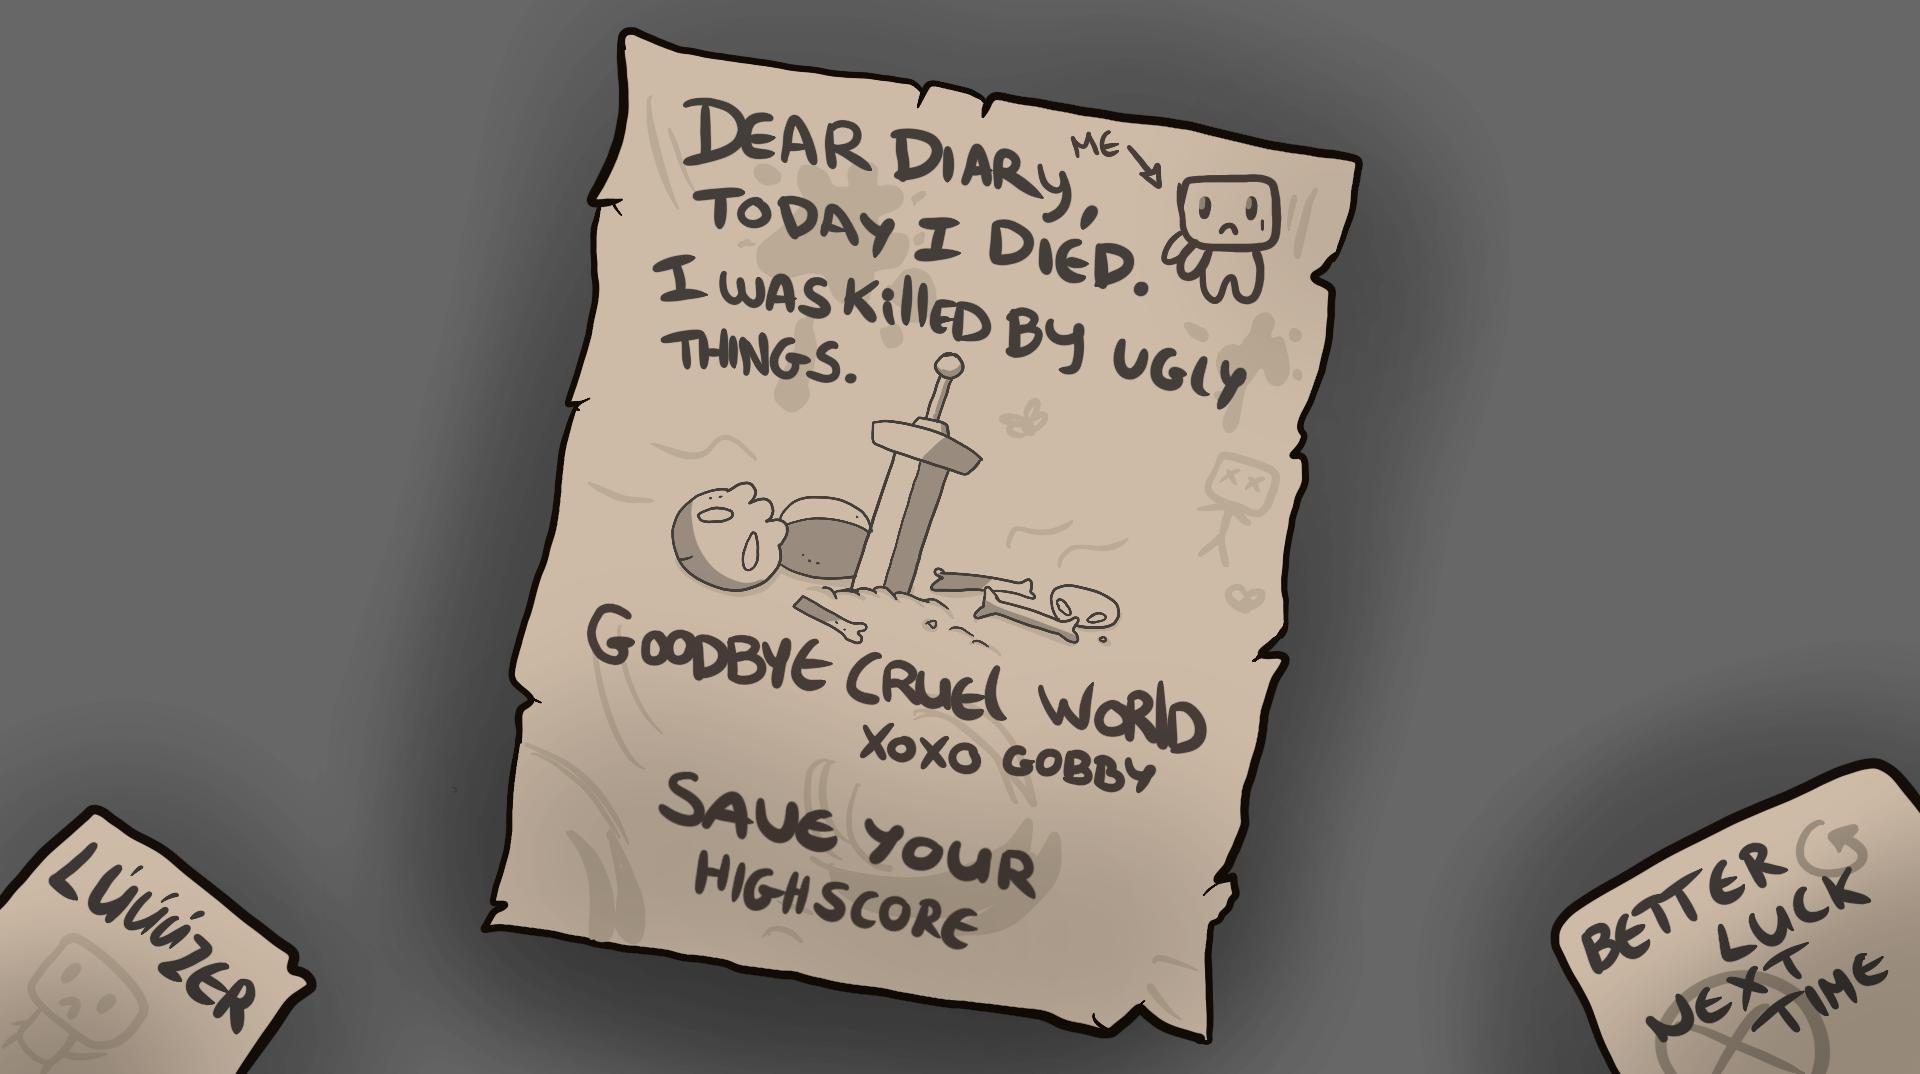 DEAR DIARY,
ME
TODAY I DIED.
I WAS KillED BY UGLY
THINGS.
GOODBYE CRUEl WORlD
XOXO GOBBY
SAVE YOUR
HIGHSCORE
LÚÚÚÚZER
BETTER
LUCK
NEXT
TIME